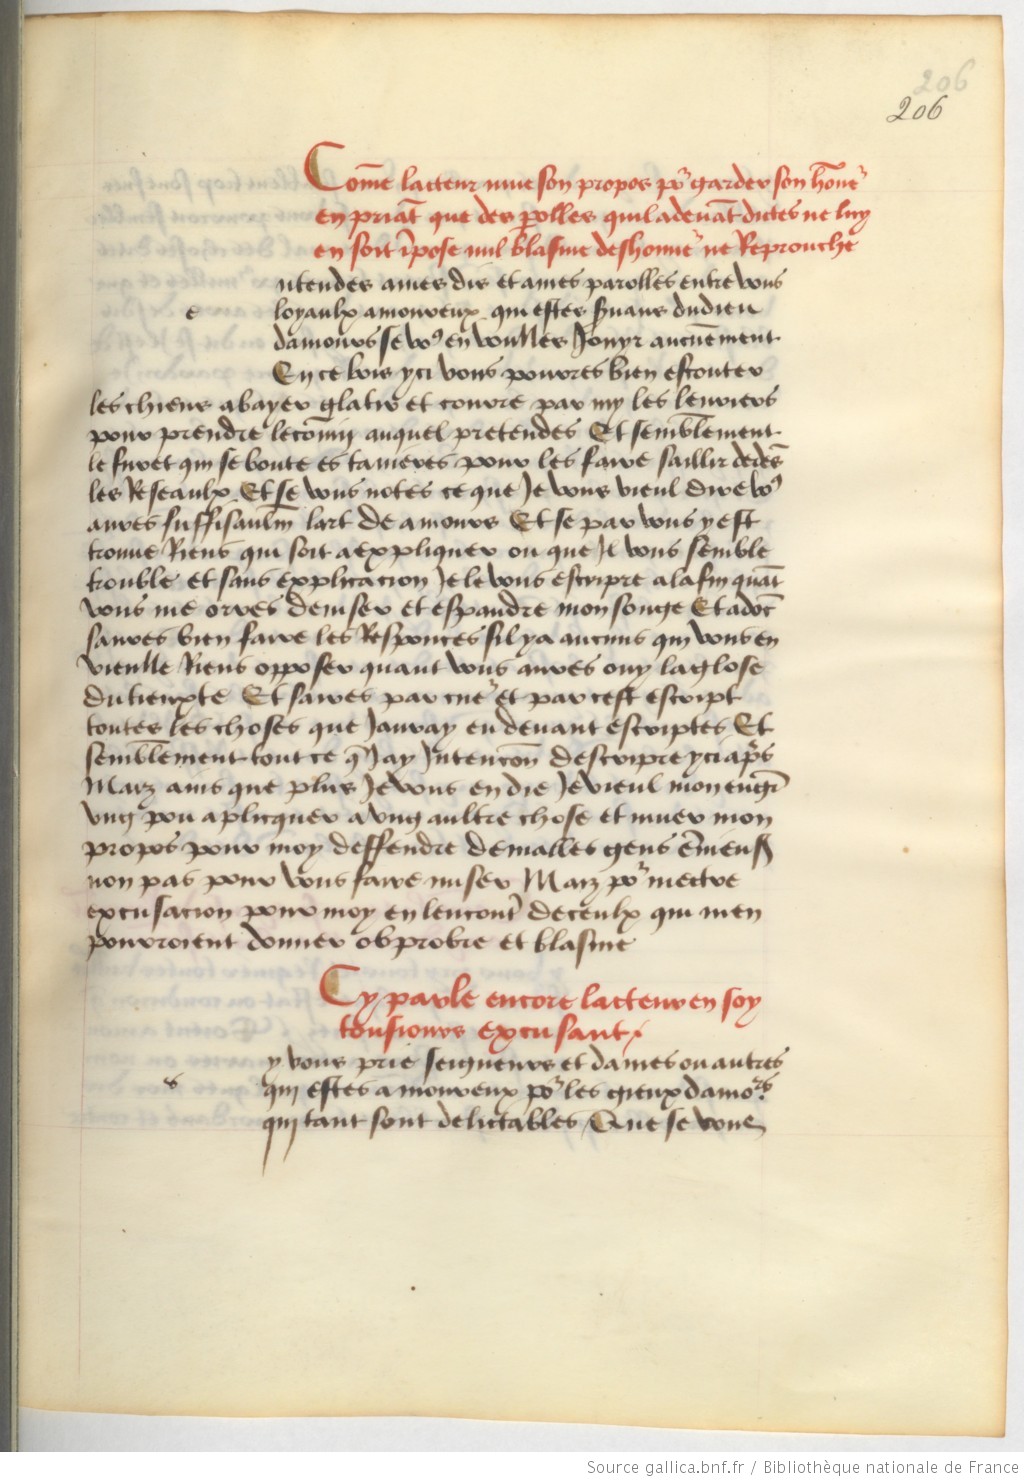 206
206
Com̄e lacteur mue son propos po᷑ garder son hōne᷑
en priāt que des p̱olles quil a devāt dictes ne luy
en soit īpose nul blasme deshonne᷑ ne Reprouche
ntendes amer dis et ames parolles entre vous
e
loyaulx amoureux qui estes s̄uans du dieu
damours se voꝰ en voulles Jouyr aucūement
En ce bois yci vous pourres bien escouter
les chiens abayer glatir et courre par my les levriers
pour prendre le cōnij auquel pretendes Et semblement
le furet qui se boute es tanieres pour les faire saillir dedēs
les Reseaulx Et se vous notes ce que Je vous vieul dire voꝰ
aures suffisaulm̄ lart de amours Et se par vous y est
trouue Riens qui soit a expliquer ou que Il vous semble
trouble et sans explicacion Je le vous escripre a la fin quāt
vous me orres deviser et espandre mon songe Et adōc
saures bien faire les Responces sil y a aucuns qui vous en
vieulle Riens opposer quant vous aures ouy la glose
du tieuxte Et saires par cue᷑ et par cest escript
toutes les choses que Jauray en devant escriptes Et
semblement tout ce q̄ Jay Intencōn descripre yci ap̄s
Marz ains que plus Je vous en die Je vieul mon engī
ung pou aplicquer a ung aultre chose et muer mon
propos pour moy deffendre de malles gens ēvieuß
non pas pour vous faire muser Marz po᷑ mectre
excusacion pour moy en lencont᷑ de ceulx qui men
pourroient donner obprobre et blasme
Cy parle encore lacteur en soy
tousiours excusant
y vous prie seigneurs et dames ou autres
s
qui estes amoureux po᷑ les gieux damo᷑s
qui tant sont delictables Que se vous
Source gallica.bnf.fr / Bibliothèque nationale de France